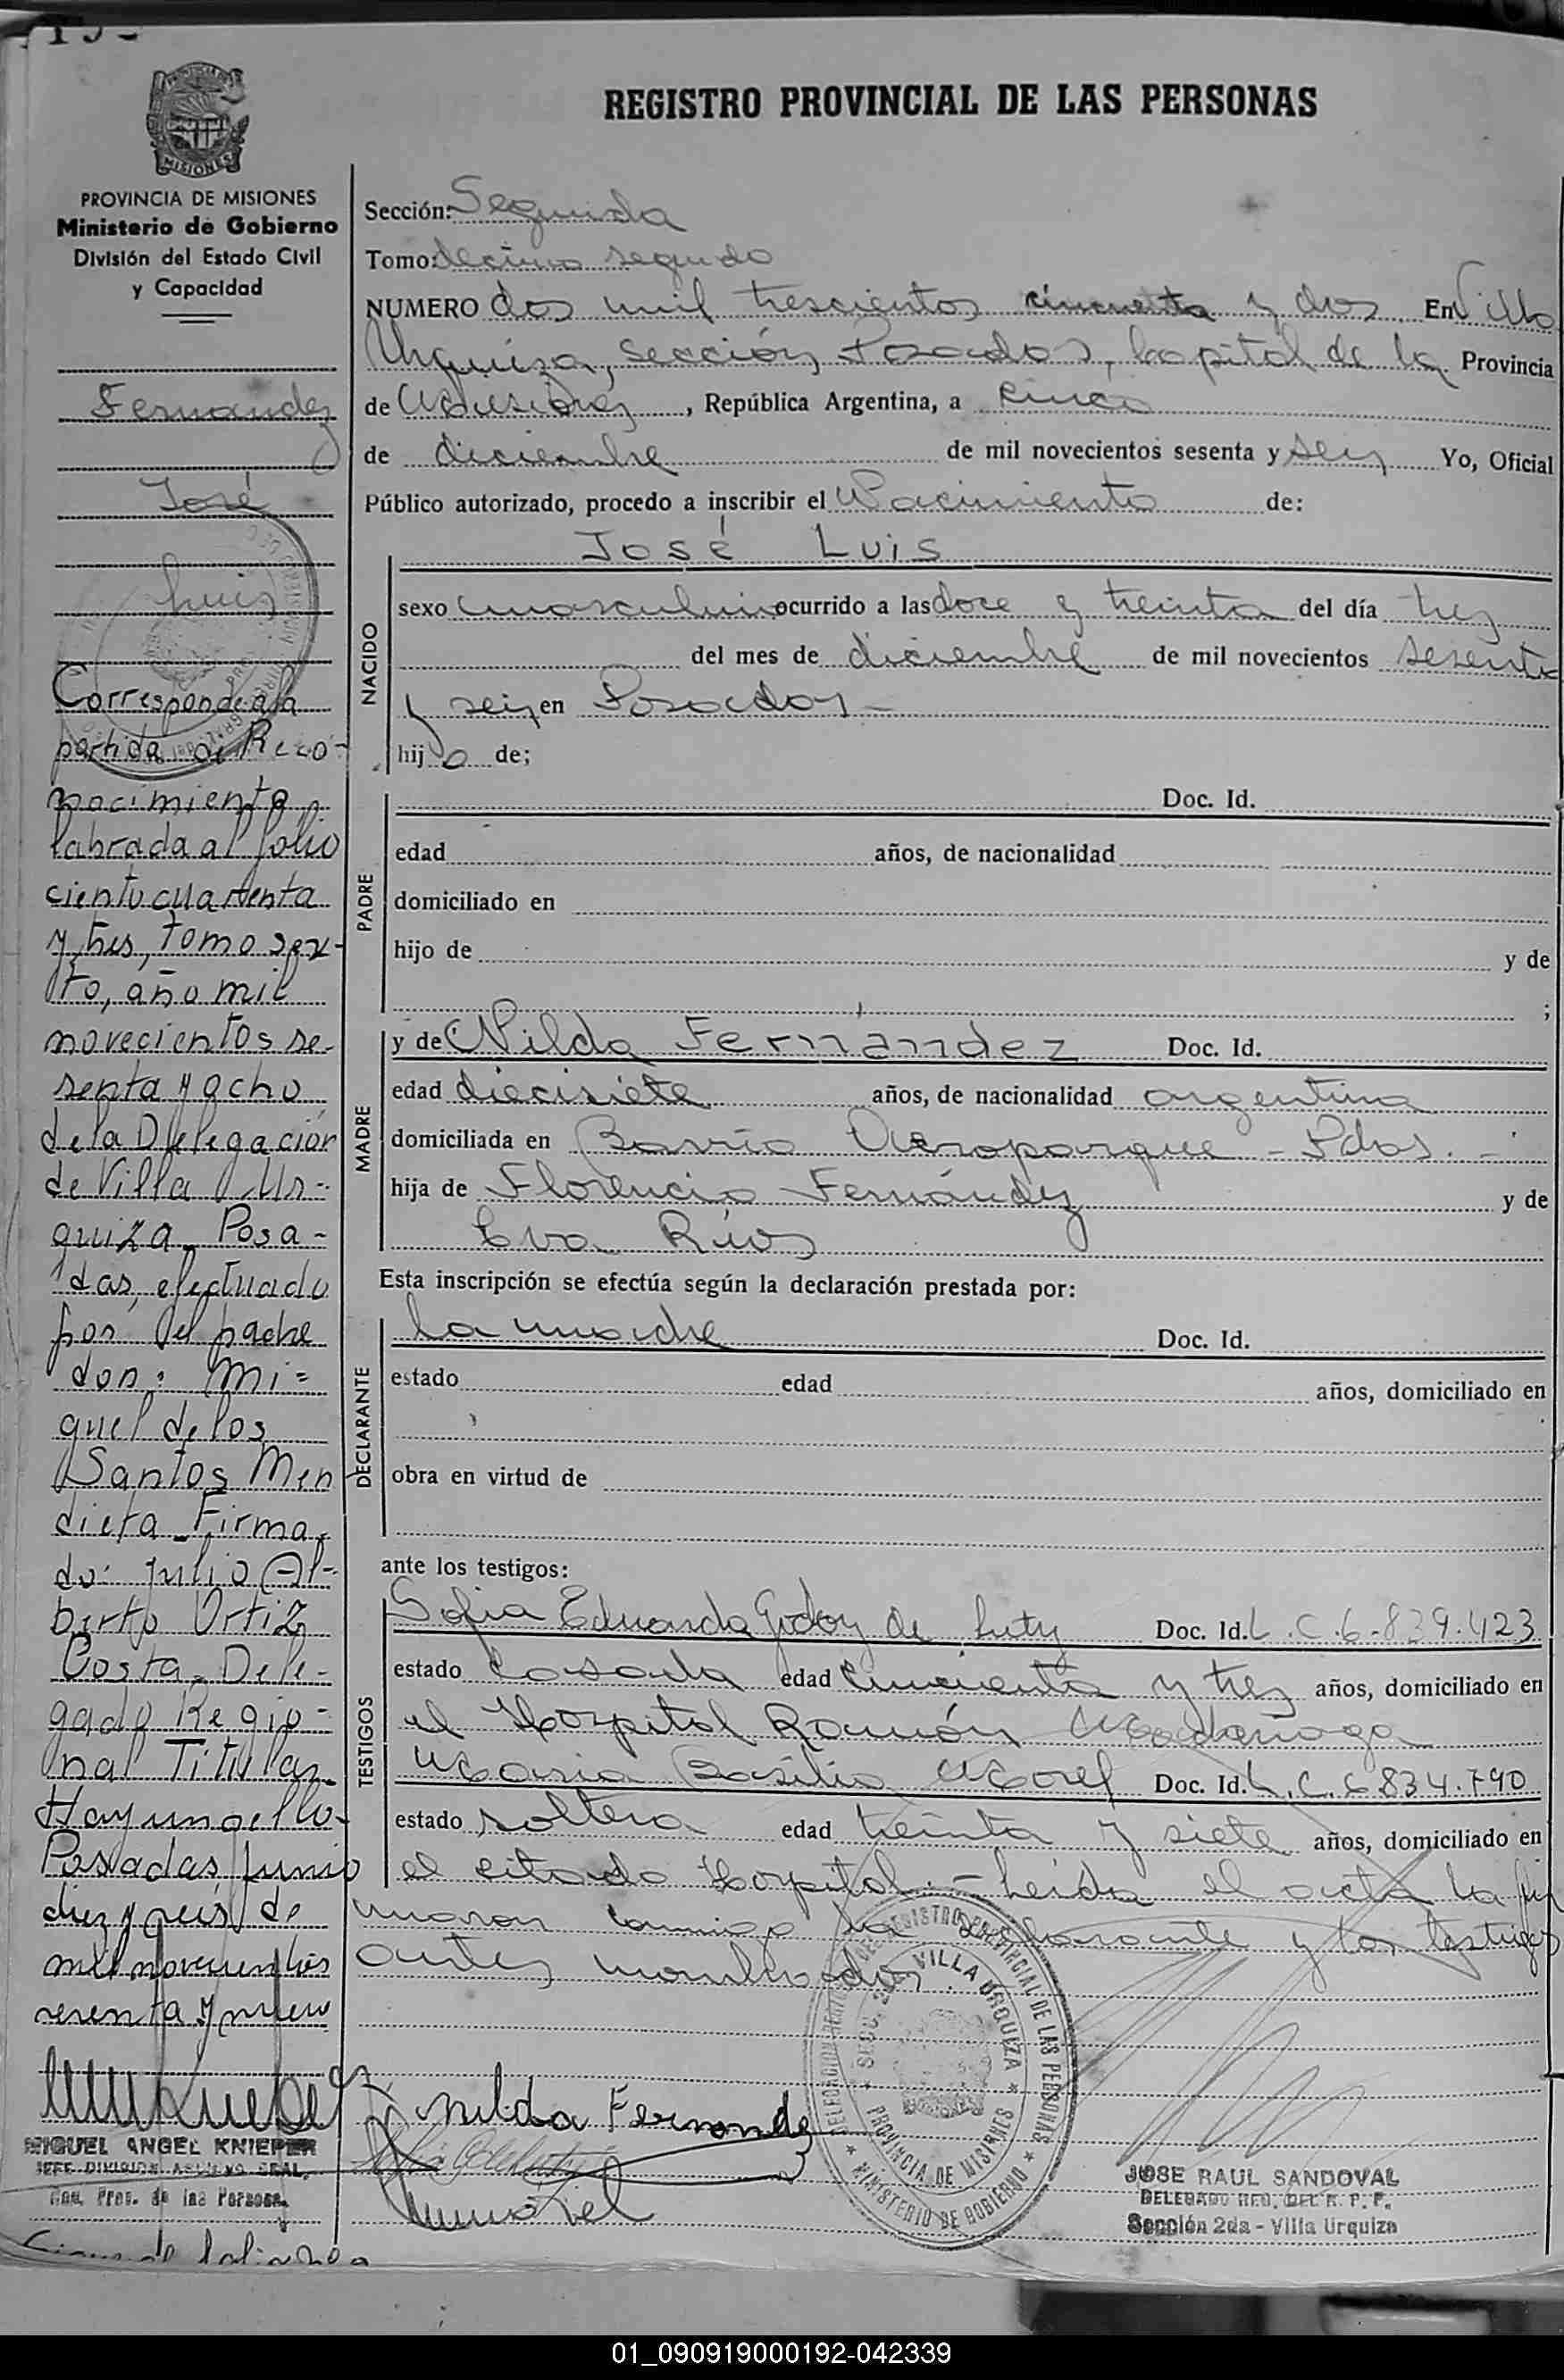 REGISTRO PROVINCIAL DE LAS PERSONAS
MISIONES
PROVINCIA DE MISIONES
Ministerio de Gobierno
División del Estado Civil
y Capacidad
Fernandez
José
Luis
Corresponde a la
partida de Reco-
nocimiento
labrada al folio
ciento cuarenta
y tres, tomo sex-
to, año mil
novecientos se-
senta y ocho
de la Delegación
de Villa Ur-
quiza Posa-
das, efectuado
por el padre
don: Mi=
guel de los
Santos Men
dieta - Firma
do: Julio Al-
berto Ortiz
Costa - Dele-
gado Regio-
nal Titular
Hay un sello-
Posadas, junio
diez y seis de
mil novecientos
sesenta y nueve
MIGUEL ANGEL KNIEPER
JEFE DIVISION ARCHIVO GRAL.
Reg. Prov. de las Personas
Sección: Segunda
Tomo: decimo segundo
NUMERO dos mil trescientos cincuenta y dos. En Villa
Urquiza, sección Posadas, capital de la Provincia
de Misiones, República Argentina, a cinco
de diciembre de mil novecientos sesenta y seis Yo, Oficial
Público autorizado, procedo a inscribir el Nacimiento de:
NACIDO
José Luis
sexo masculino ocurrido a las doce y treinta del día tres
del mes de diciembre de mil novecientos sesenta
y seis en Posadas -
hijo de;
PADRE
Doc. Id.
edad años, de nacionalidad
domiciliado en
hijo de y de
;
MADRE
y de Nilda Fernández Doc. Id.
edad diecisiete años, de nacionalidad argentina
domiciliada en Barrio Aeroparque - Pdas. -
hija de Florencio Fernández y de
Eva Ríos
Esta inscripción se efectúa según la declaración prestada por:
DECLARANTE
La madre Doc. Id.
estado edad años, domiciliado en
obra en virtud de
ante los testigos:
TESTIGOS
Sofia Eduarda Godoy de Doc. Id. L.C.6.839.423
estado casada edad cincuenta y tres años, domiciliado en
el Hospital Ramón Madariaga
Maria Basilia Morel Doc. Id. L.C.6.834.790
estado soltera edad treinta y siete años, domiciliado en
el citado Hospital. - Leída el acta la fir
maron conmigo la declarante y los testigos
antes nombrados.
Nilda Fernandez
DELEGACION REGISTRO PROVINCIAL DE LAS PERSONAS
VILLA URQUIZA
PROVINCIA DE MISIONES
MINISTERIO DE GOBIERNO
JOSE RAUL SANDOVAL
DELEGADO REG. DEL R. P. P.
Sección 2da - Villa Urquiza
01_090919000192-042339